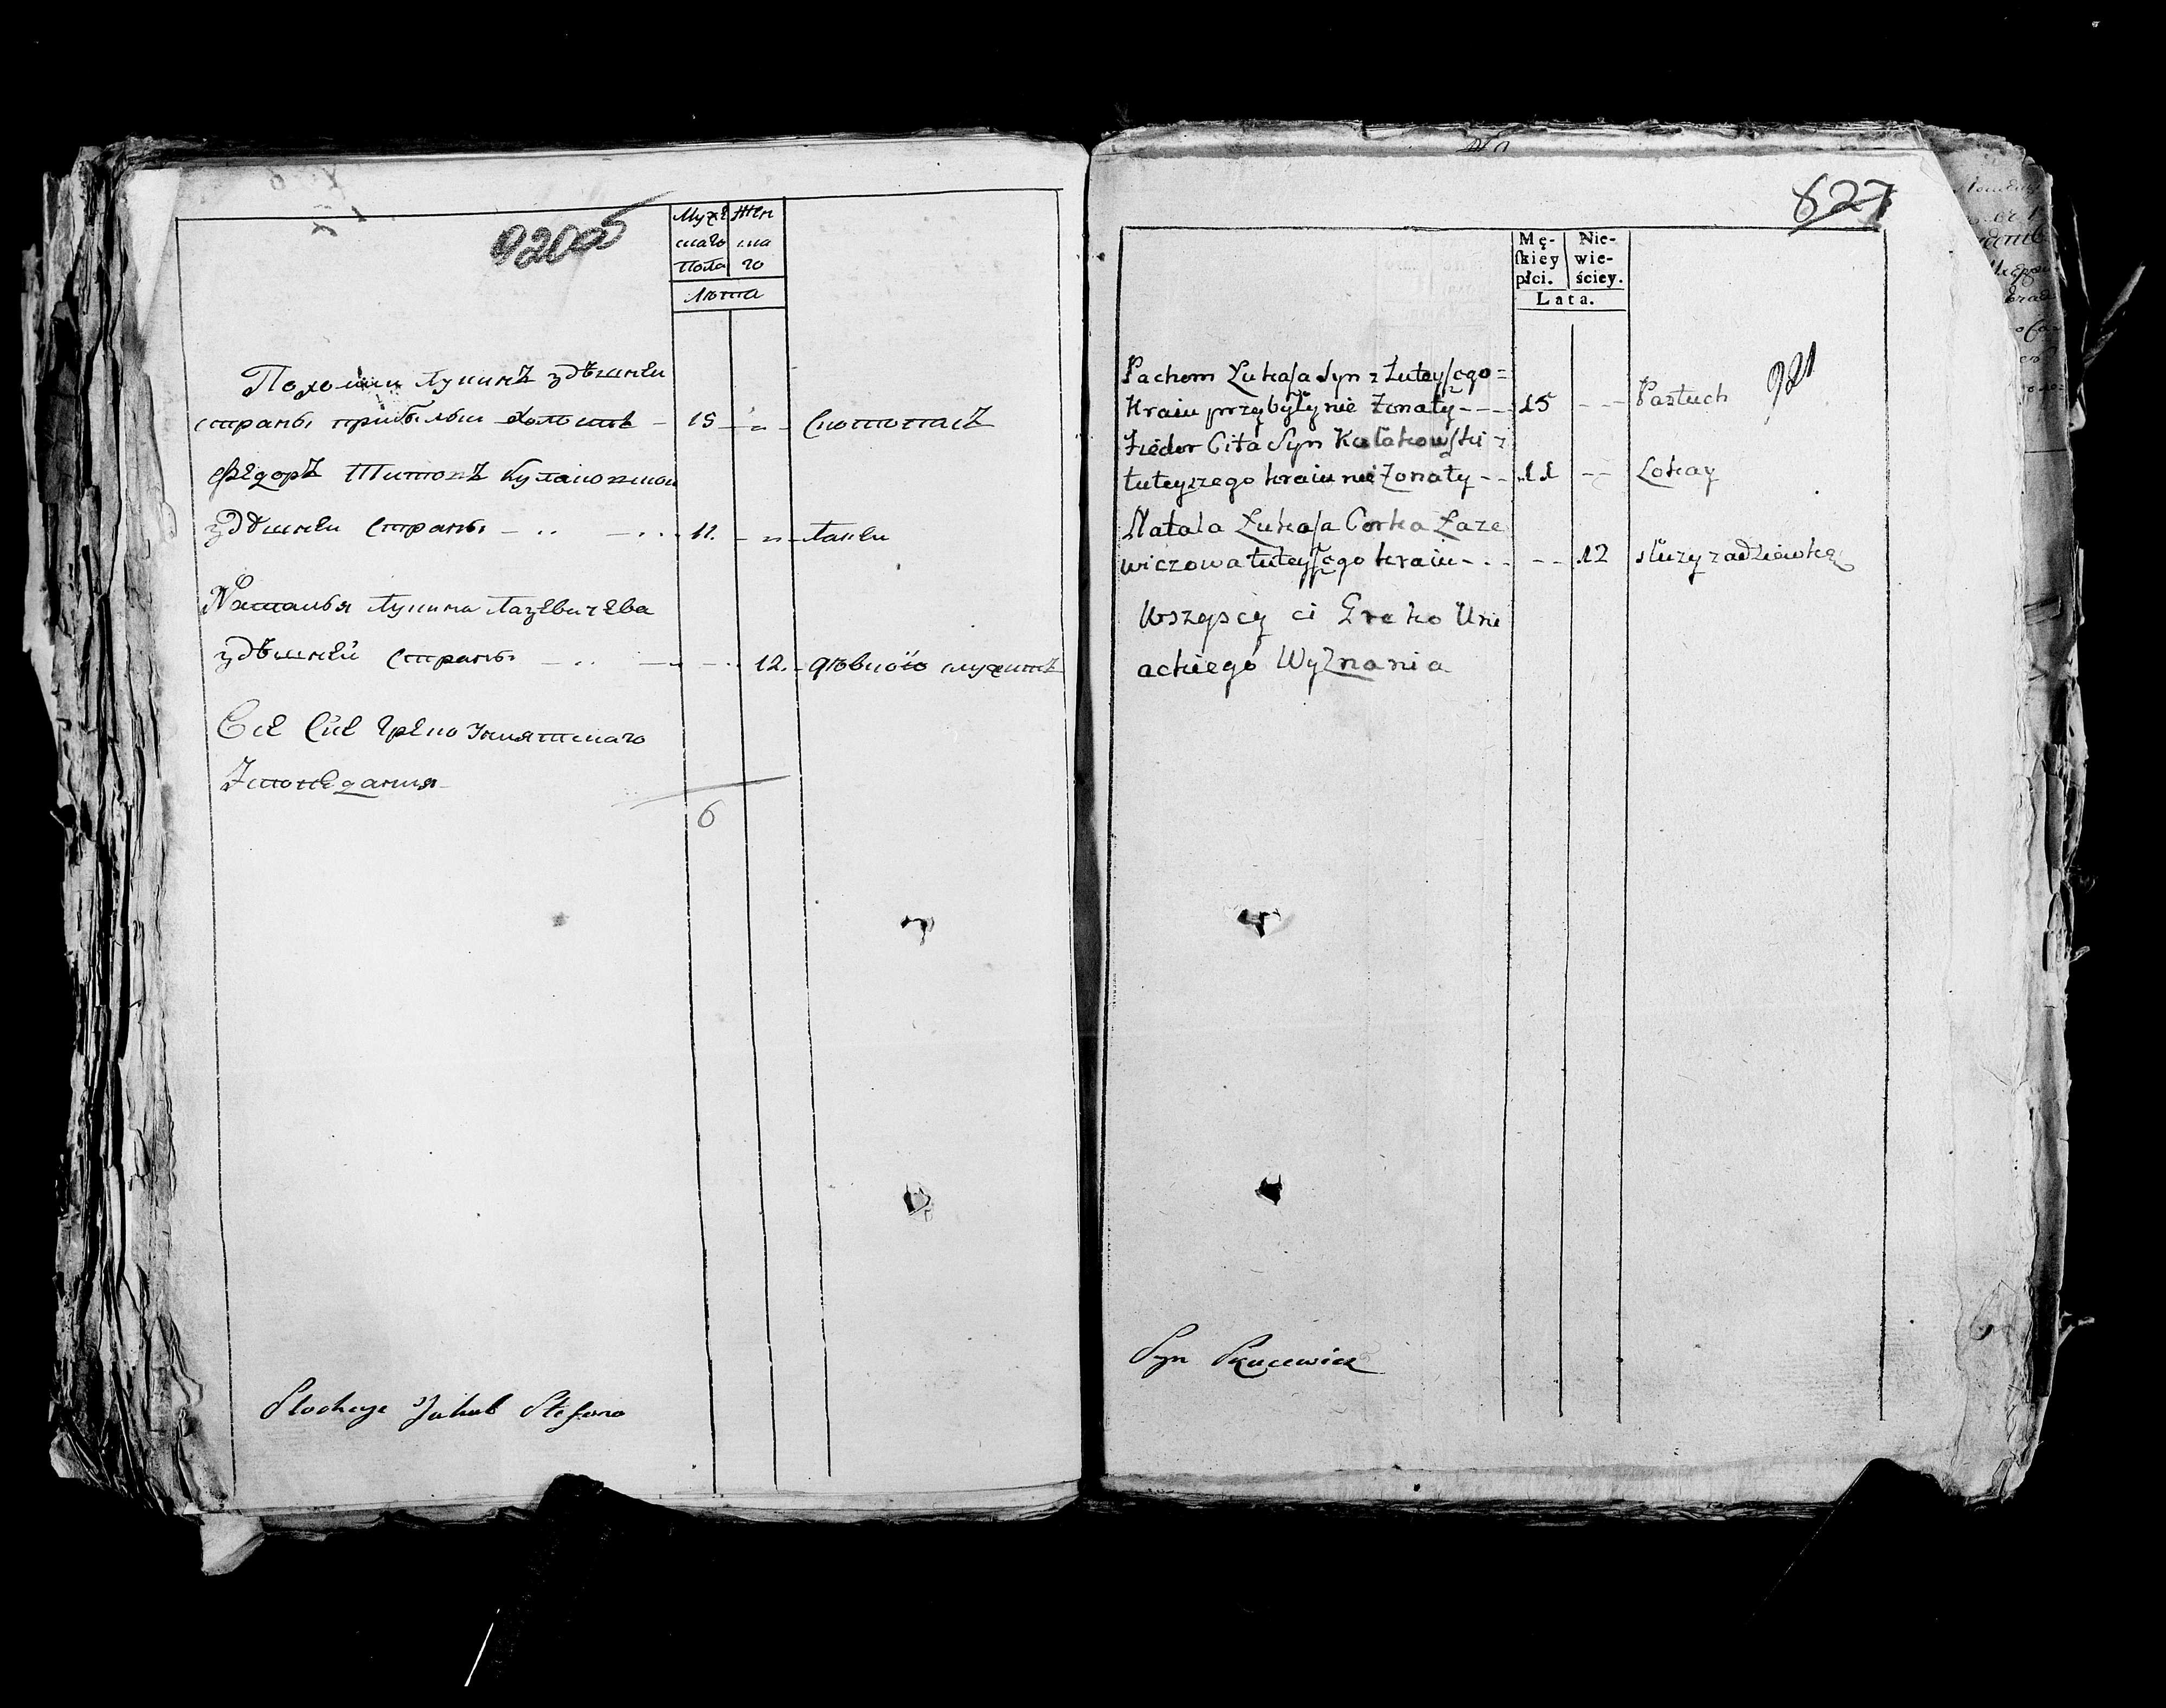 920об
Мужескаго Пола
Женскаго
Лѣта
Похоми Лукинъ здѣшнеи
страны прибылыи холостъ 15 скотопасъ
Федоръ Титовъ Кулаковский
здѣшнеи страны 11. Лакеи
Наталья Лукина Лазевичева
здѣшнеи страны 12. девкою служитъ
Все сіе Греко Униятскаго
Исповедания
6
Jakub Stefana
827
921
Mę-skiey płci.
Nie-wie-ściey.
Lata.
Pachom Łukasza Syn z tuteyszego
Kraiu przybyły nie Żonaty 15 Pastuch
Fiedor Cita Syn Kułakowski z
tuteyszego kraiu nie Żonaty 11 Lokay
Natala Łukasza Corka Łaze
wiczowa tuteyszego kraiu 12 służy za dziewkę
Wszyscy ci Greko Uni
ackiego Wyznania
Syn